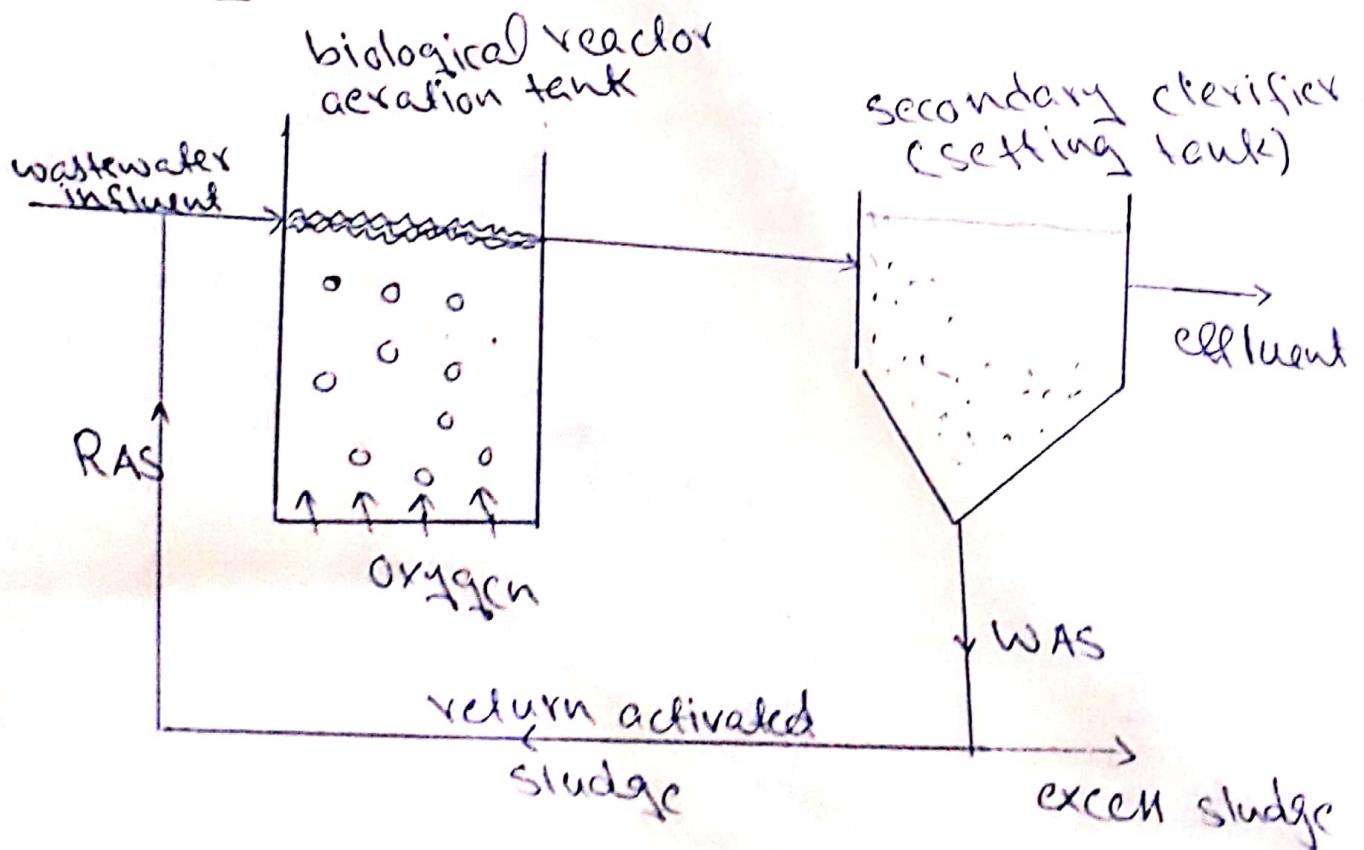 biological reactor
aeration tank
secondary clerifier
(setting tank)
wastewater
influent
effluent
RAS
oxygen
WAS
return activated
sludge
excess sludge